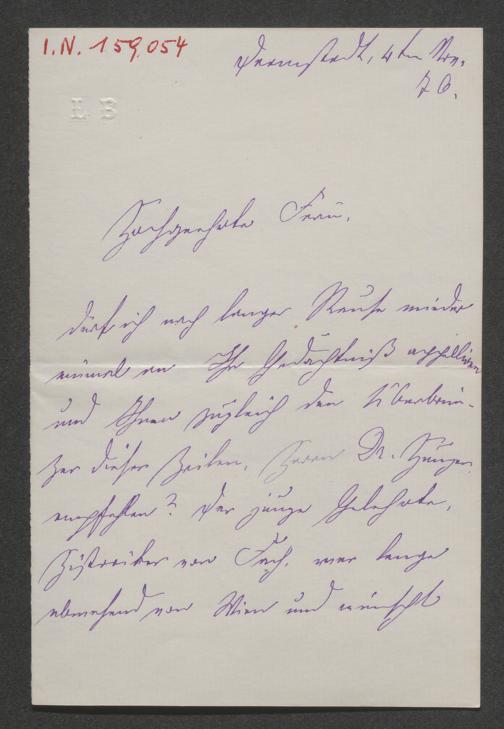 I.N. 159.054
Darmstadt, 4ten Nov.
76.
L B
Hochgeehrte Frau,
darf ich nach langer Pause wieder
einmal an Ihr Gedächtniß appelliren
und Ihnen zugleich den Überbrin-
ger dieser Zeilen, Herrn Dr.
empfehlen? Der junge Gelehrte,
Historiker von Fach, war lange
abwesend von Wien und wünscht